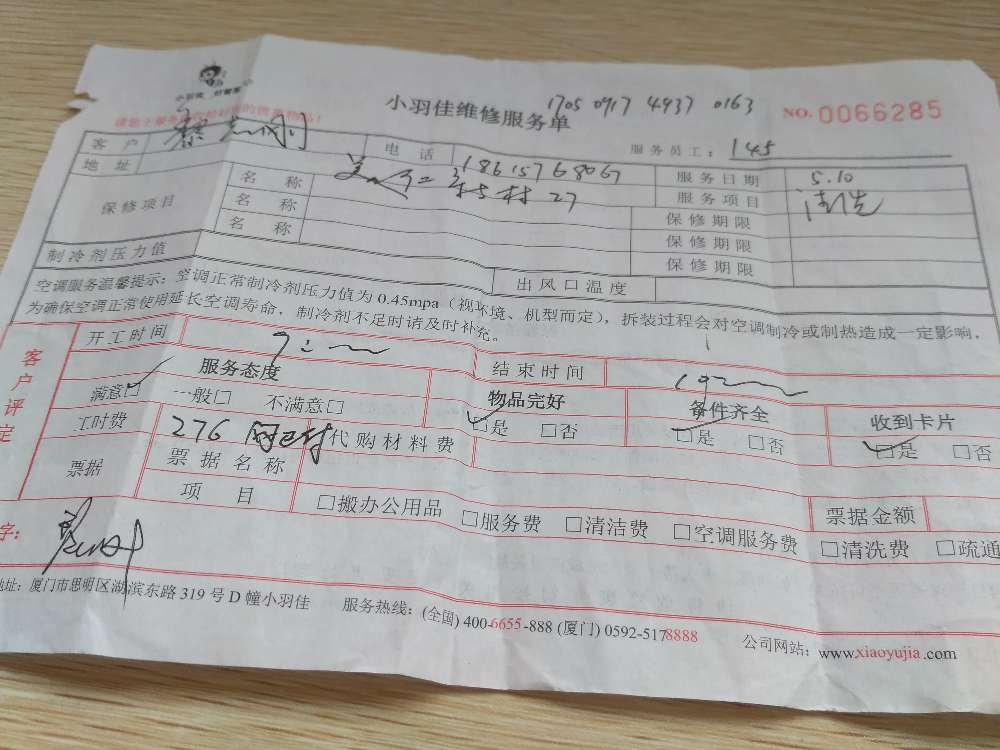 小羽佳 好管家
小羽佳维修服务单
1705 0917 4937 0163
NO. 0066285
服务员工: 145
客户
电话 18615768067
服务日期 5.10
地址 村 27
服务项目 清洗
保修项目
名称
保修期限
名称
保修期限
名称
保修期限
制冷剂压力值
出风口温度
空调服务温馨提示: 空调正常制冷剂压力值为 0.45mpa (视环境、机型而定), 拆装过程会对空调制冷或制热造成一定影响,
为确保空调正常使用延长空调寿命, 制冷剂不足时请及时补充。
客户评定
开工时间
结束时间
服务态度
物品完好
备件齐全
收到卡片
满意☑ 一般□ 不满意□
☑是 □否
☑是 □否
☑是 □否
工时费 276 网已付
代购材料费
票据
票据名称
票据金额
项目
□搬办公用品 □服务费 □清洁费 □空调服务费 □清洗费 □疏通
字:
地址: 厦门市思明区湖滨东路 319 号 D 幢小羽佳
服务热线: (全国) 400-6655-888 (厦门) 0592-5178888
公司网站: www.xiaoyujia.com